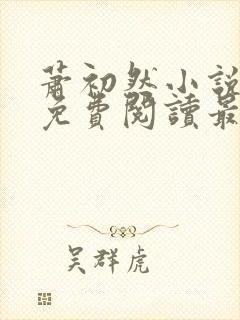 蕭初然小說
免費閱讀最
吴群虎